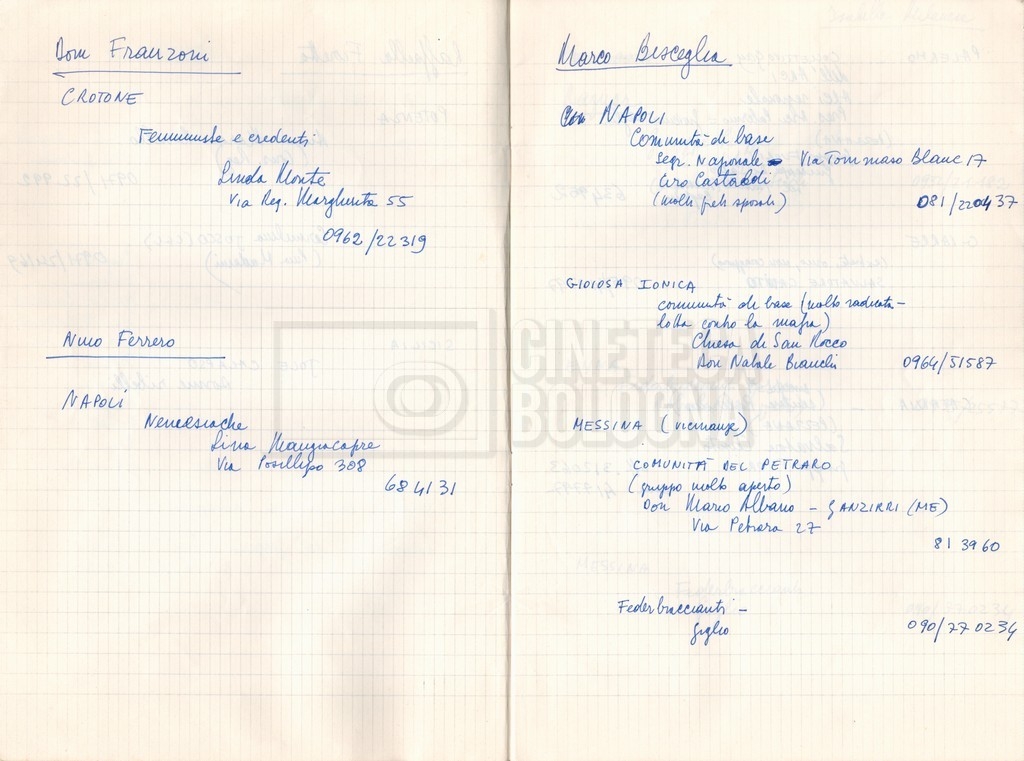 Dom Franzoni
CROTONE
Femministe e credenti
Linda Monte
Via Reg. Margherita 55
0962/22319
Nino Ferrero
NAPOLI
Nemesiache
Lina Mangiacapre
Via Posillipo 308
684131
Marco Bisceglia
NAPOLI
Comunità de base
Segr. Nazionale - Via Tommaso Blanc 17
Ciro Castaldi
(molti preti sposati)
081/220437
GIOIOSA IONICA
comunità de base (molto radicata -
lotta contro la mafia)
Chiesa di San Rocco
Don Natale Bianchi 0964/51587
MESSINA (vicinanze)
COMUNITÀ DEL PETRARO
(gruppo molto aperto)
Don Mario Albano - GANZIRRI (ME)
Via Petrara 27
813960
Federbraccianti -
Giglio 090/770234
CINETECA
BOLOGNA